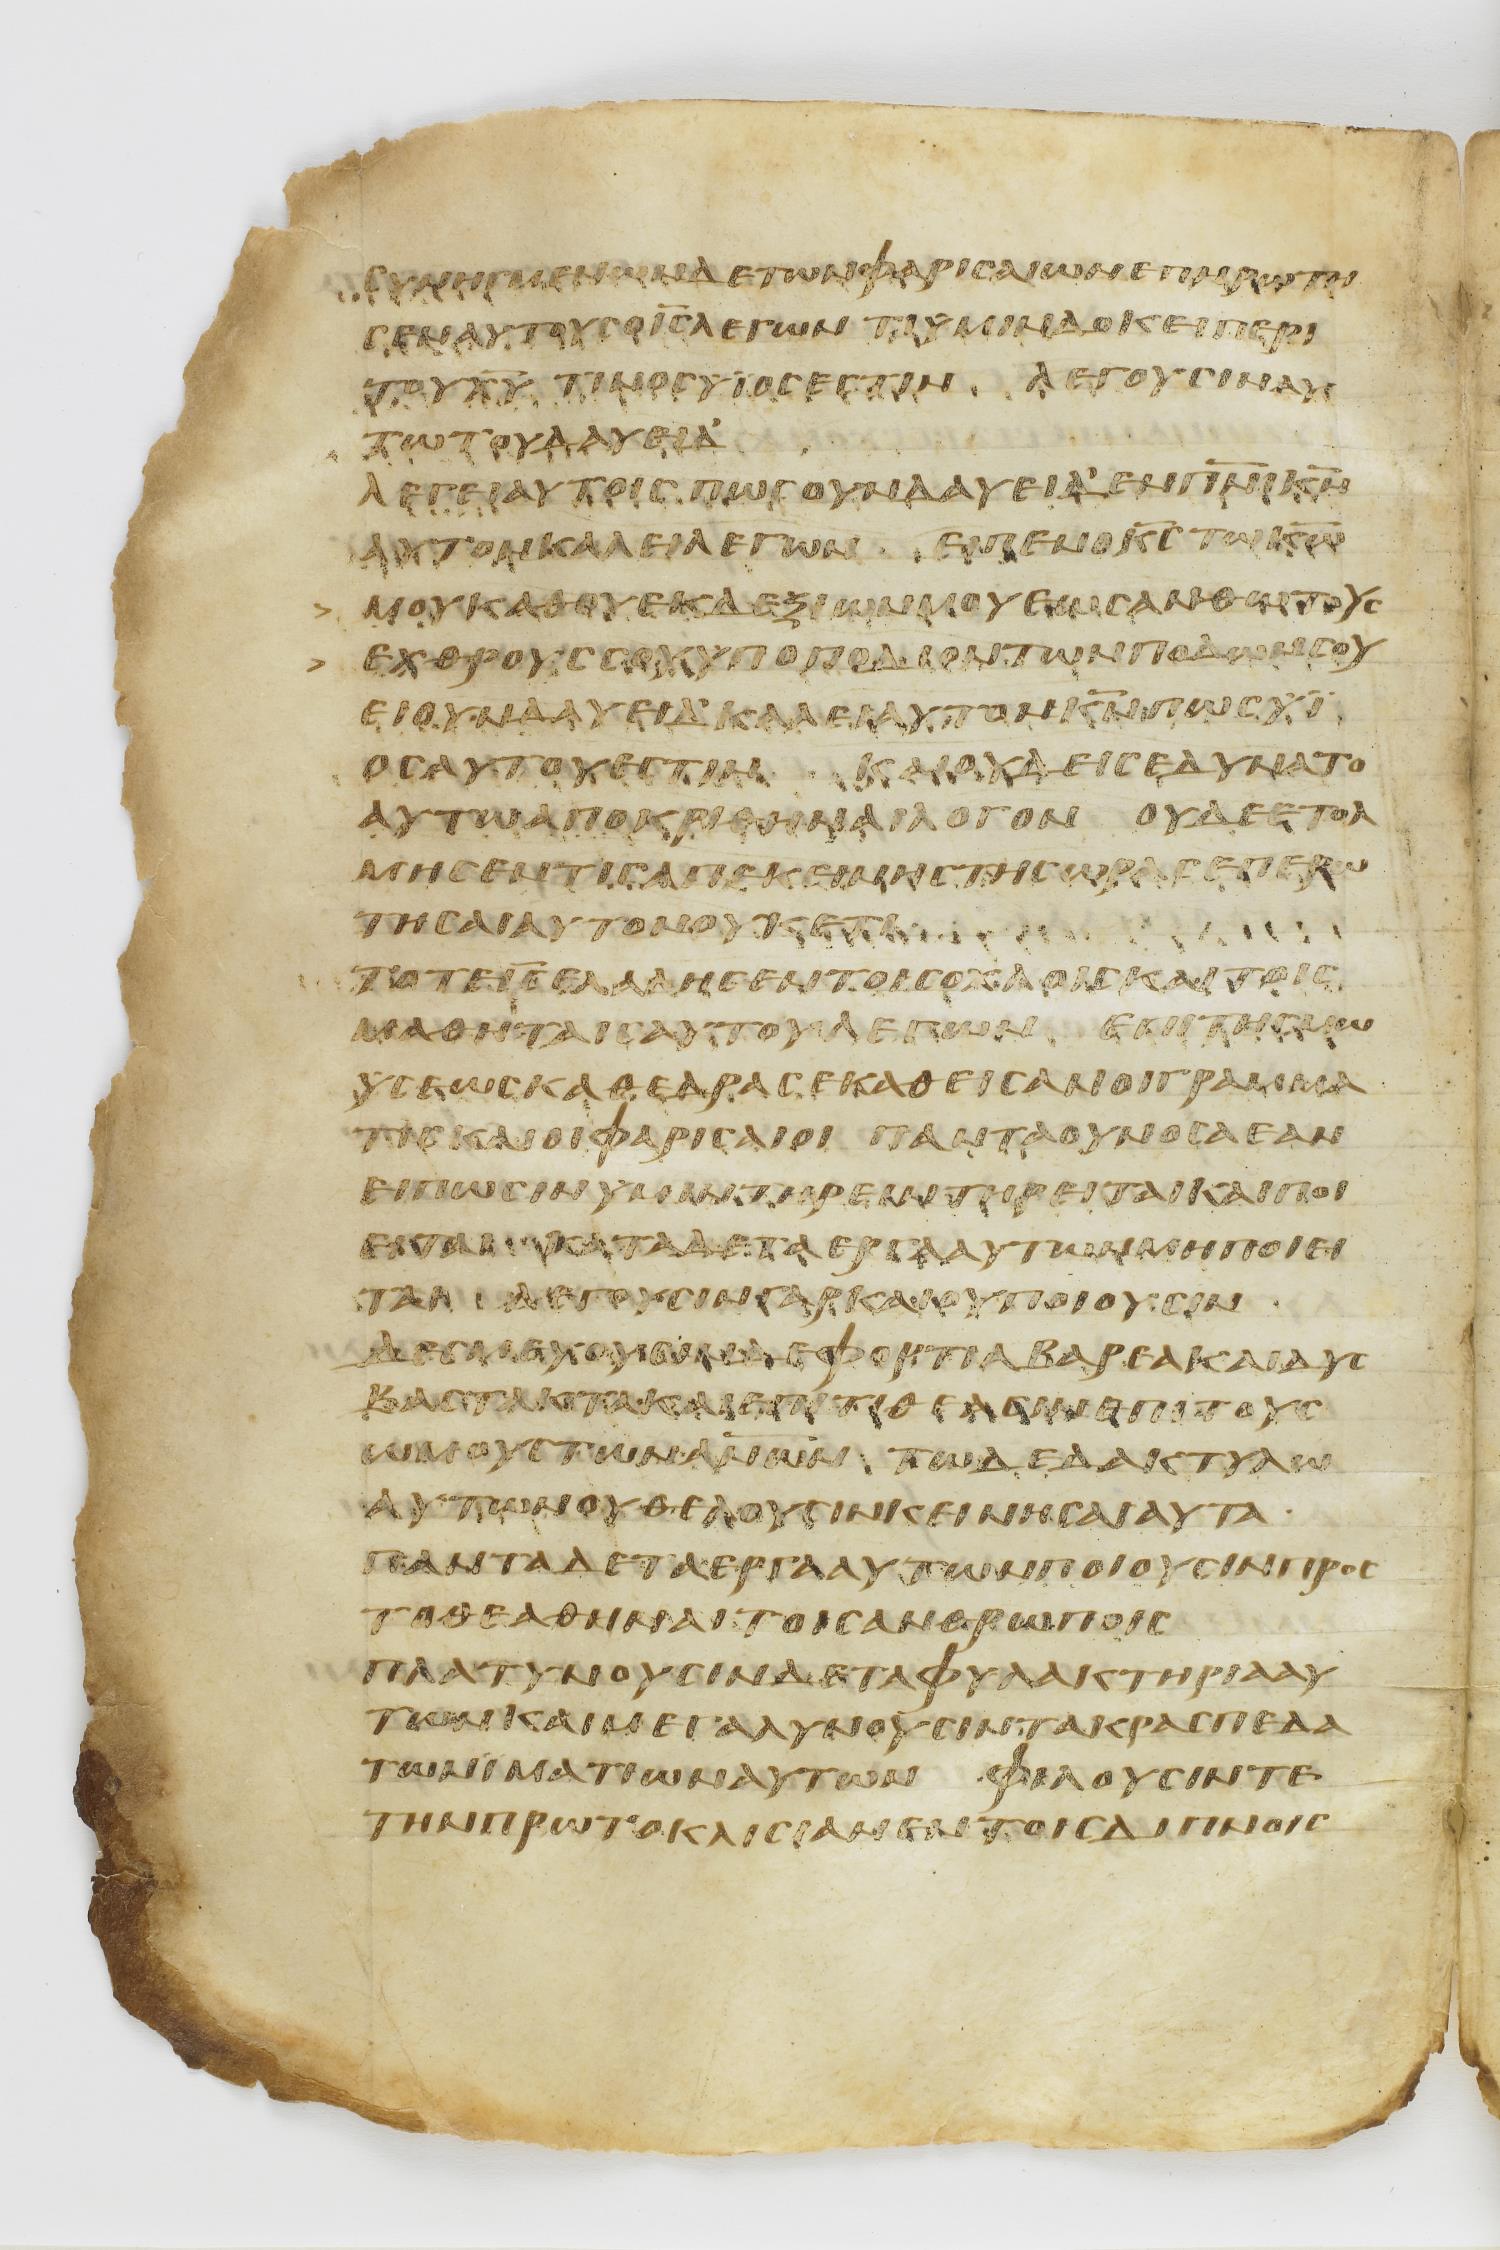 ϹΥΝΗΓΜΕΝΩΝΔΕΤΩΝΦΑΡΙϹΑΙΩΝΕΠΗΡΩΤΗ
ϹΕΝΑΥΤΟΥϹΟΙ̅Ϲ̅ΛΕΓΩΝ ΤΙΥΜΙΝΔΟΚΕΙΠΕΡΙ
ΤΟΥΧ̅Υ̅ ΤΙΝΟϹΥΙΟϹΕϹΤΙΝ ΛΕΓΟΥϹΙΝΑΥ
ΤΩΤΟΥΔΑΥΕΙΔ
ΛΕΓΕΙΑΥΤΟΙϹΠΩϹΟΥΝΔΑΥΕΙΔΕΝΠ̅Ν̅Ι̅Κ̅Ν̅
ΑΥΤΟΝΚΑΛΕΙΛΕΓΩΝ ΕΙΠΕΝΟΚ̅Ϲ̅ΤΩΚ̅Ω̅
> ΜΟΥΚΑΘΟΥΕΚΔΕΞΙΩΝΜΟΥΕΩϹΑΝΘΩΤΟΥϹ
> ΕΧΘΡΟΥϹϹΟΥΥΠΟΠΟΔΙΟΝΤΩΝΠΟΔΩΝϹΟΥ
ΕΙΟΥΝΔΑΥΕΙΔΚΑΛΕΙΑΥΤΟΝΚ̅Ν̅ΠΩϹΥΪ
ΟϹΑΥΤΟΥΕϹΤΙΝ ΚΑΙΟΥΔΕΙϹΕΔΥΝΑΤΟ
ΑΥΤΩΑΠΟΚΡΙΘΗΝΑΙΛΟΓΟΝ ΟΥΔΕΕΤΟΛ
ΜΗϹΕΝΤΙϹΑΠΕΚΕΙΝΗϹΤΗϹΩΡΑϹΕΠΕΡΩ
ΤΗϹΑΙΑΥΤΟΝΟΥΚΕΤΙ
ΤΟΤΕΟΙ̅Ϲ̅ΕΛΑΛΗϹΕΝΤΟΙϹΟΧΛΟΙϹΚΑΙΤΟΙϹ
ΜΑΘΗΤΑΙϹΑΥΤΟΥΛΕΓΩΝ ΕΠΙΤΗϹΜΩ
ΥϹΕΩϹΚΑΘΕΔΡΑϹΕΚΑΘΕΙϹΑΝΟΙΓΡΑΜΜΑ
ΤΙϹΚΑΙΟΙΦΑΡΙϹΑΙΟΙ ΠΑΝΤΑΟΥΝΟϹΑΕΑΝ
ΕΙΠΩϹΙΝΥΜΙΝΤΗΡΕΙΝΤΗΡΕΙΤΑΙΚΑΙΠΟΙ
ΕΙΤΑΙ ΚΑΤΑΔΕΤΑΕΡΓΑΑΥΤΩΝΜΗΠΟΙΕΙ
ΤΑΙ ΛΕΓΟΥϹΙΝΓΑΡΚΑΙΟΥΠΟΙΟΥϹΙΝ
ΔΕϹΜΕΥΟΥϹΙΝΔΕΦΟΡΤΙΑΒΑΡΕΑΚΑΙΔΥϹ
ΒΑϹΤΑΚΤΑΚΑΙΕΠΙΤΙΘΕΑϹΙΝΕΠΙΤΟΥϹ
ΩΜΟΥϹΤΩΝΑ̅Ν̅Ω̅Ν̅ ΤΩΔΕΔΑΚΤΥΛΩ
ΑΥΤΩΝΟΥΘΕΛΟΥϹΙΝΚΕΙΝΗϹΑΙΑΥΤΑ
ΠΑΝΤΑΔΕΤΑΕΡΓΑΑΥΤΩΝΠΟΙΟΥϹΙΝΠΡΟϹ
ΤΟΘΕΑΘΗΝΑΙΤΟΙϹΑΝΘΡΩΠΟΙϹ
ΠΛΑΤΥΝΟΥϹΙΝΔΕΤΑΦΥΛΑΚΤΗΡΙΑΑΥ
ΤΩΝΚΑΙΜΕΓΑΛΥΝΟΥϹΙΝΤΑΚΡΑϹΠΕΔΑ
ΤΩΝΪΜΑΤΙΩΝΑΥΤΩΝ ΦΙΛΟΥϹΙΝΤΕ
ΤΗΝΠΡΩΤΟΚΛΙϹΙΑΝΕΝΤΟΙϹΔΙΠΝΟΙϹ